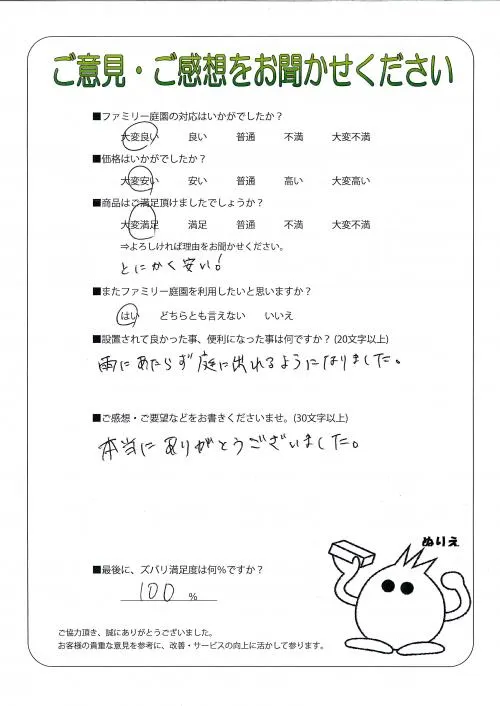 ご意見・ご感想をお聞かせください
■ファミリー庭園の対応はいかがでしたか？
大変良い 良い 普通 不満 大変不満
■価格はいかがでしたか？
大変安い 安い 普通 高い 大変高い
■商品はご満足頂けましたでしょうか？
大変満足 満足 普通 不満 大変不満
⇒よろしければ理由をお聞かせください。
とにかく安い！
■またファミリー庭園を利用したいと思いますか？
はい どちらとも言えない いいえ
■設置されて良かった事、便利になった事は何ですか？(20文字以上)
雨にあたらず庭に出れるようになりました。
■ご感想・ご要望などをお書きくださいませ。(30文字以上)
本当にありがとうございました。
ぬりえ
■最後に、ズバリ満足度は何％ですか？
100 %
ご協力頂き、誠にありがとうございました。
お客様の貴重な意見を参考に、改善・サービスの向上に活かして参ります。